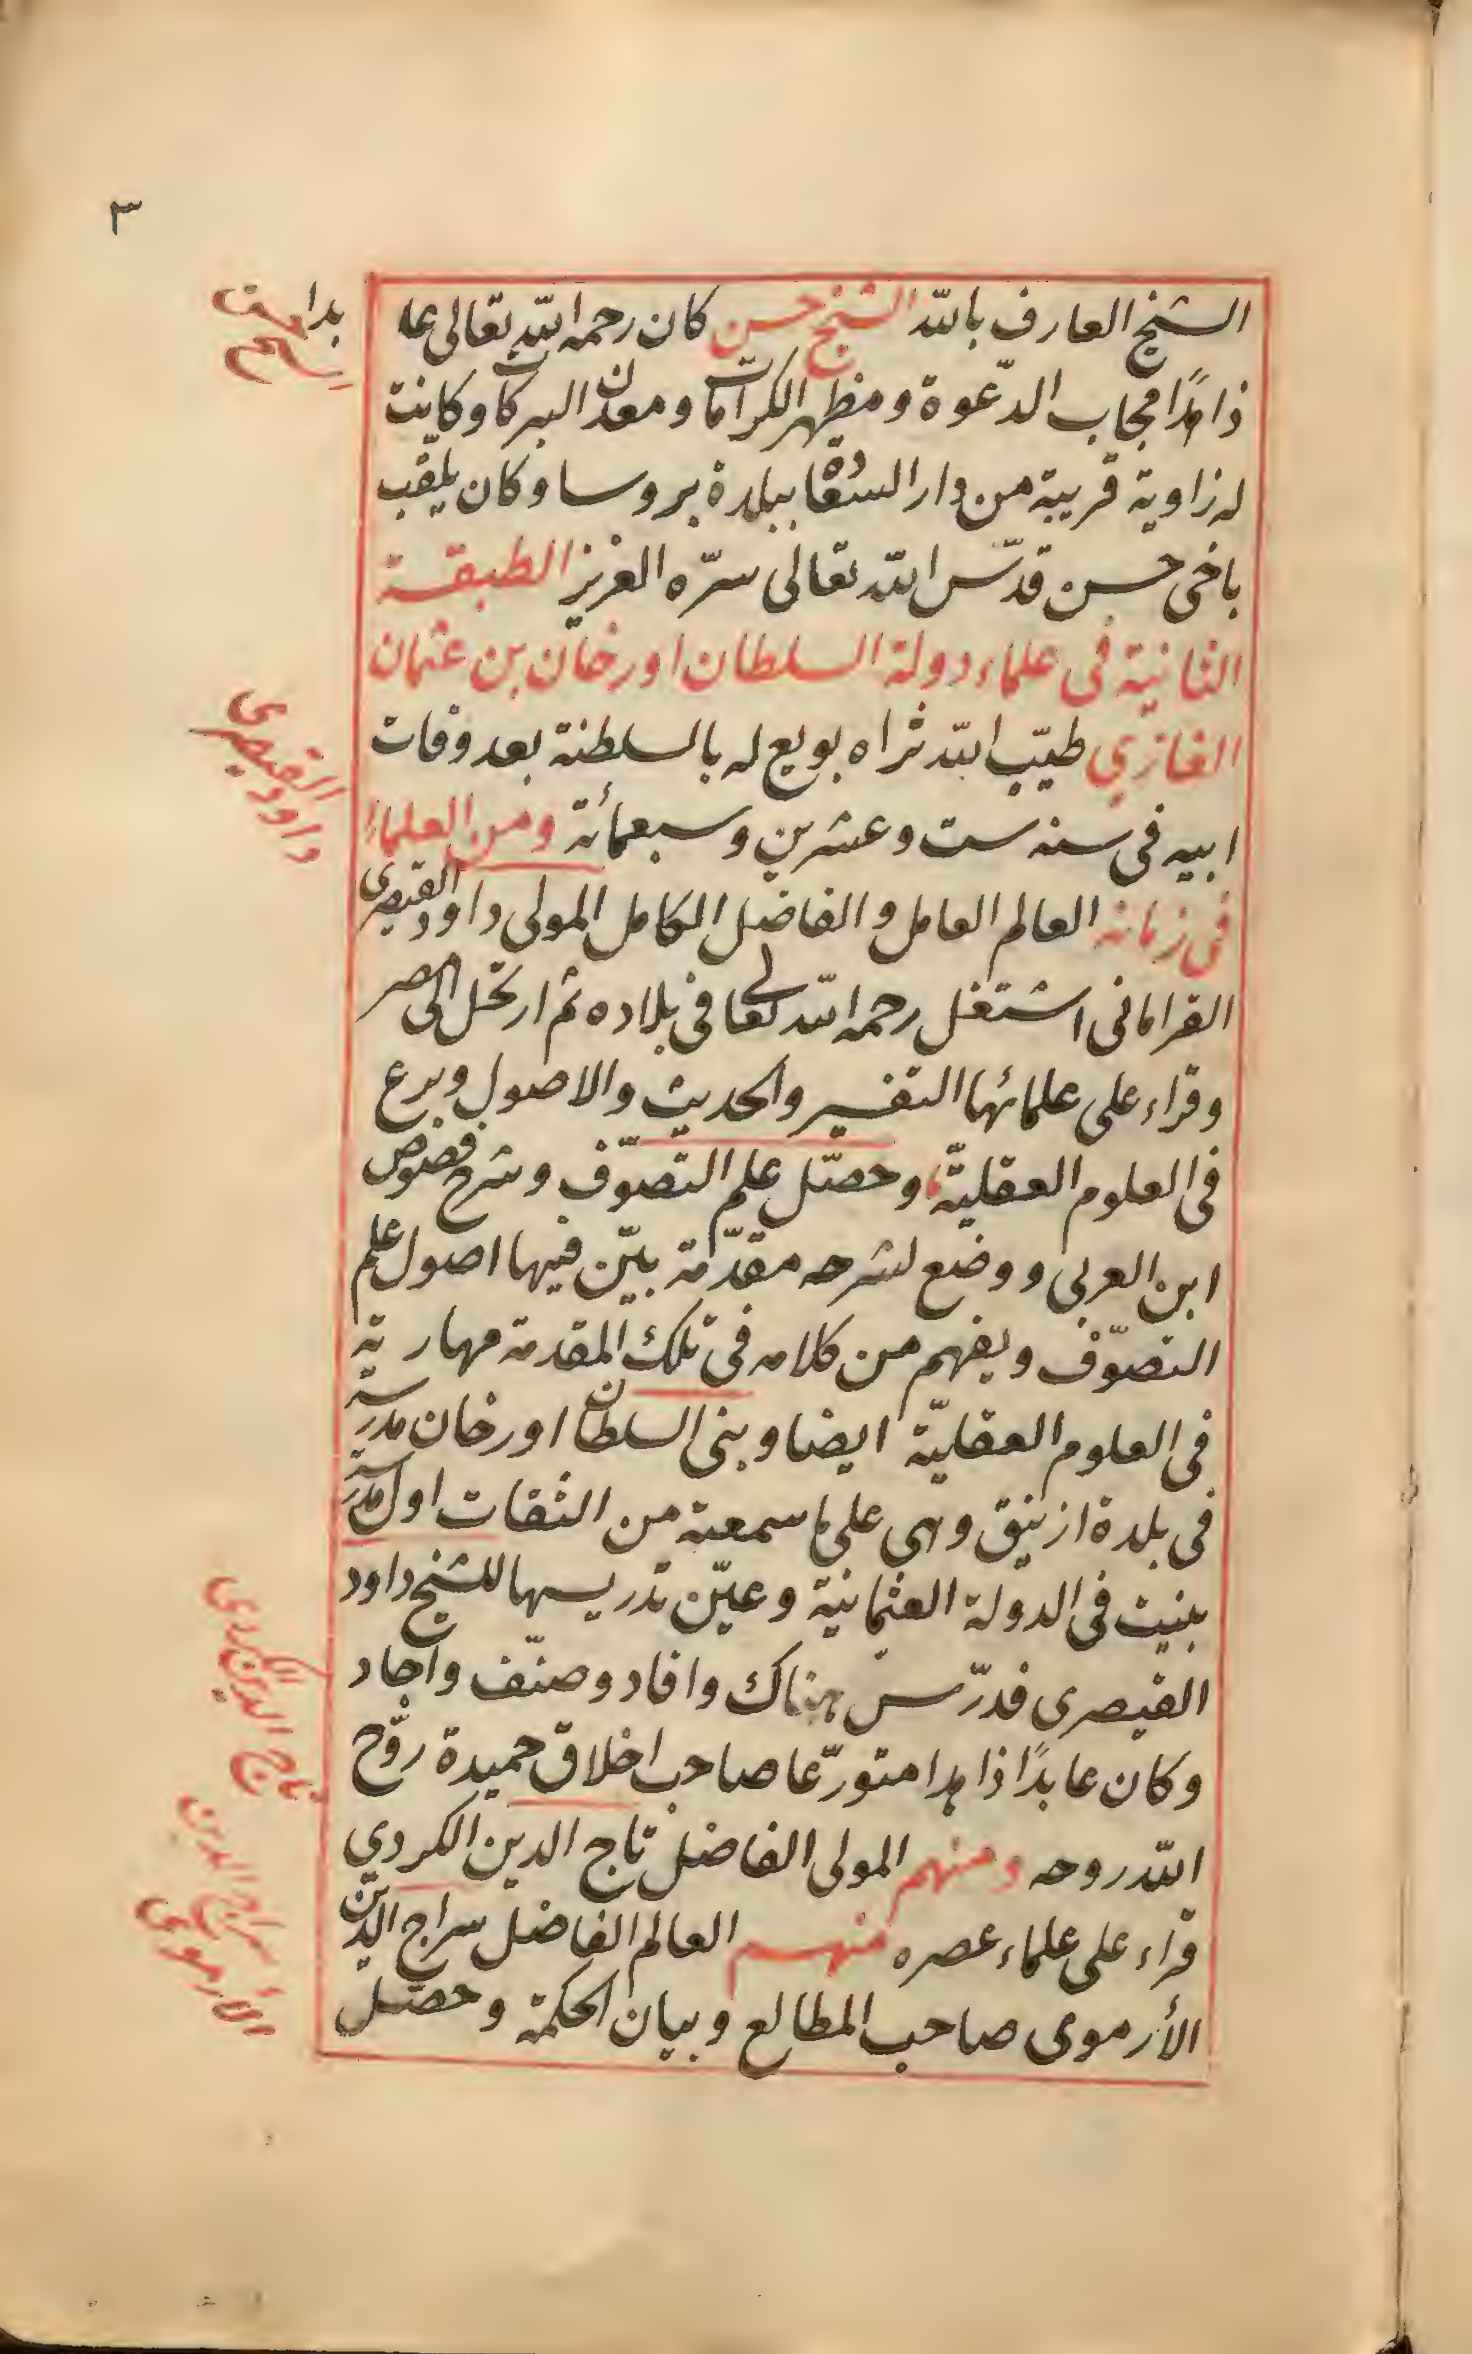 ٣
الشيخ العارف بالله الشيخ حسن كان رحمه الله تعالى عا
ذاهدًا مجاب الدّعوة ومظهر الكرامات ومعدن البركات وكانت
له زاوية قريبة من دار السعادة ببلدة بروسا وكان يلقب
باخى حسن قدّس الله تعالى سرّه العزيز الطبقة
الثانية فى علماء دولة السلطان اورخان بن عثمان
الغازي طيّب الله ثراه بويع له بالسلطنة بعد وفات
ابيه فى سنه ست وعشرين وسبعمائة ومن العلماء
فى زمانه العالم العامل والفاضل الكامل المولى داود القيصرى
القرامانى اشتغل رحمه الله تعالى فى بلاده ثم ارتحل الى مصر
وقراء على علمائها التفسير والحديث والاصول وبرع
فى العلوم العقليّة وحصّل علم التصوّف وشرح فصوص
ابن العربى ووضع لشرحه مقدّمة بيّن فيها اصول علم
التصوّف ويفهم من كلامه فى تلك المقدمة مهارته
فى العلوم العقليّة ايضا وبنى السلطان اورخان مدرسة
فى بلدة ازنيق وهى على ما سمعته من الثقات اول مدرسة
بنيت فى الدولة العثمانية وعيّن تدريسها للشيخ داود
القيصرى فدرّس هناك وافاد وصنّف واجاد
وكان عابدًا ذاهدا متورّعا صاحب اخلاق حميدة روّح
الله روحه ومنهم المولى الفاضل تاج الدين الكردي
قراء على علماء عصره منهم العالم الفاضل سراج الدين
الأرموى صاحب المطالع وبيان الحكمة وحصّل
داود القيصرى
تاج الدين الكردى
سراج الدين
الأرموى